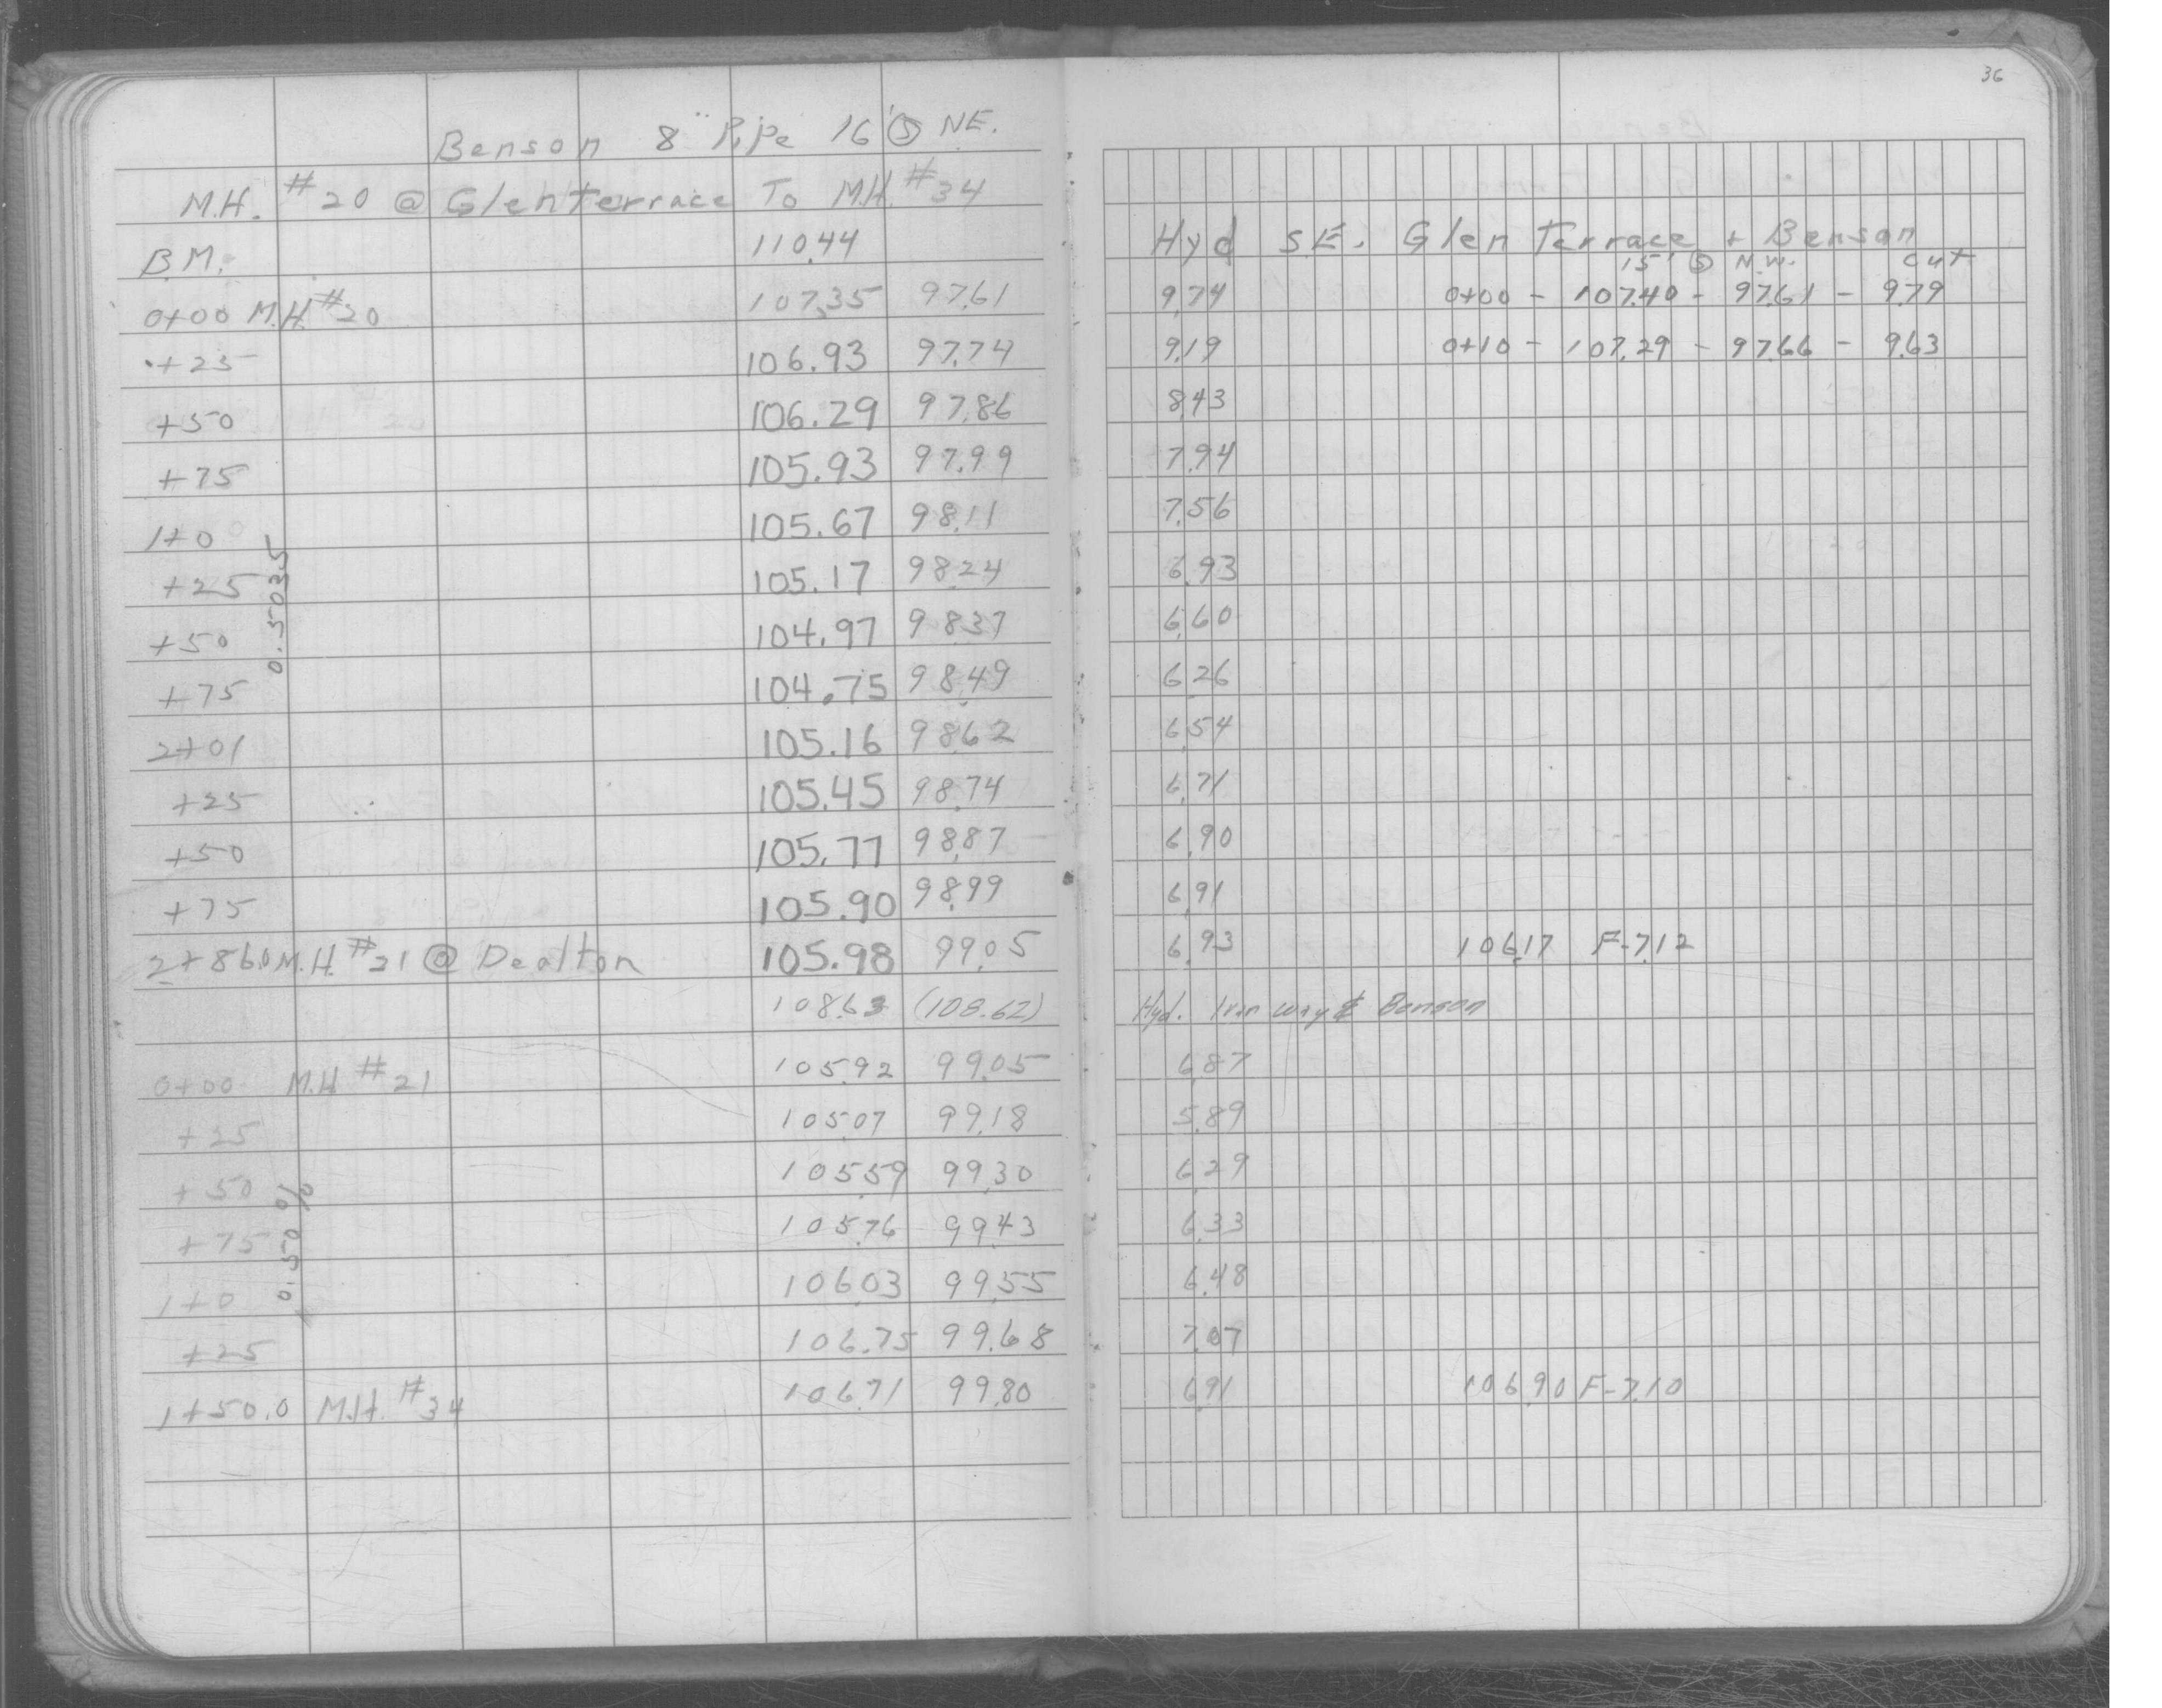 36
Benson 8" Pipe 16' Ⓢ NE.
M.H. #20 @ Glen Terrace To M.H. #34
B.M. 110.44 Hyd S.E. Glen Terrace + Benson
15' Ⓢ N.W. Cut
0+00 M.H. #20 107.35 97.61 9.74 0+00 - 107.40 - 97.61 - 9.79
+25 106.93 97.74 9.19 0+10 - 107.29 - 97.66 - 9.63
+50 106.29 97.86 8.43
+75 105.93 97.99 7.94
1+0 105.67 98.11 7.56
+25 105.17 98.24 6.93
+50 104.97 98.37 6.60
0.5035
+75 104.75 98.49 6.26
2+01 105.16 98.62 6.54
+25 105.45 98.74 6.71
+50 105.77 98.87 6.90
+75 105.90 98.99 6.91
2+86.0 M.H. #21 @ Dealton 105.98 99.05 6.93 106.17 F-7.12
108.63 (108.62) Hyd. Iron way & Benson
0+00 M.H #21 105.92 99.05 6.87
+25 105.07 99.18 5.89
+50 105.59 99.30 6.29
+75 105.76 99.43 6.33
0.50 %
1+0 106.03 99.55 6.48
+25 106.75 99.68 7.07
1+50.0 M.H. #34 106.71 99.80 6.91 106.90 F-7.10